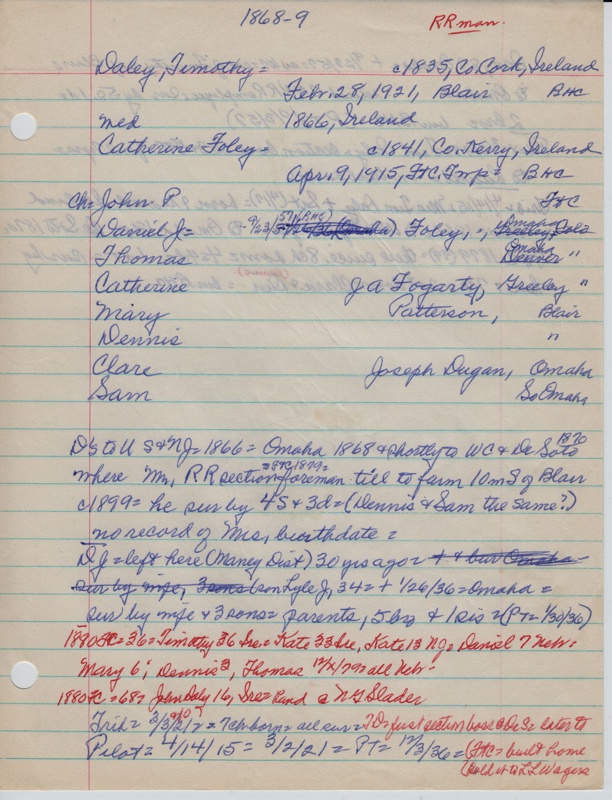 1868-9
RR man.
Daley, Timothy = c1835, Co. Cork, Ireland
Febr. 28, 1921, Blair BHC
med 1866, Ireland
Catherine Foley = c1841, Co. Kerry, Ireland
Apr. 9, 1915, FtC. Tmp = BHC
Ch = John P. FtC
Daniel J = Foley, " , Omaha Greeley, Colo
Thomas Omaha Denver "
Catherine J A Fogarty, Greeley "
Mary Patterson, Blair
Dennis "
Clare Joseph Dugan, Omaha
Sam So Omaha
D's to U S & NJ = 1866 = Omaha 1868 & shortly to WC & De Soto 1870
where Mr, RR section foreman till to farm 10 m S of Blair
c1899 = he sur by 4 S & 3 d = (Dennis & Sam the same?)
no record of Mrs, birthdate =
D J = left here (Maney Dist) 30 yrs ago = + & bur Omaha
sur by wife, 3 sons (son Lyle J, 34 = + 1/26/36 = Omaha =
sur by wife & 3 sons = parents, 5 br & 1 sis = (PT = 1/30/36)
1880 = 36 = Timothy 36 Ire = Kate 33 Ire, Kate 13 NJ = Daniel 7 Nebr -
Mary 6; Dennis 3, Thomas 12/4/79 = all Nebr -
1880 FtC = 68 = John Daly 16, Ire = hand c N G Slader
Trib = 7 ch born = all sur = TD = first section boss @ DeS = later to
Pilot = 4/14/15 = 3/2/21 = PT = 12/3/36 = (FtC = built home
(sold it to L L Wagers